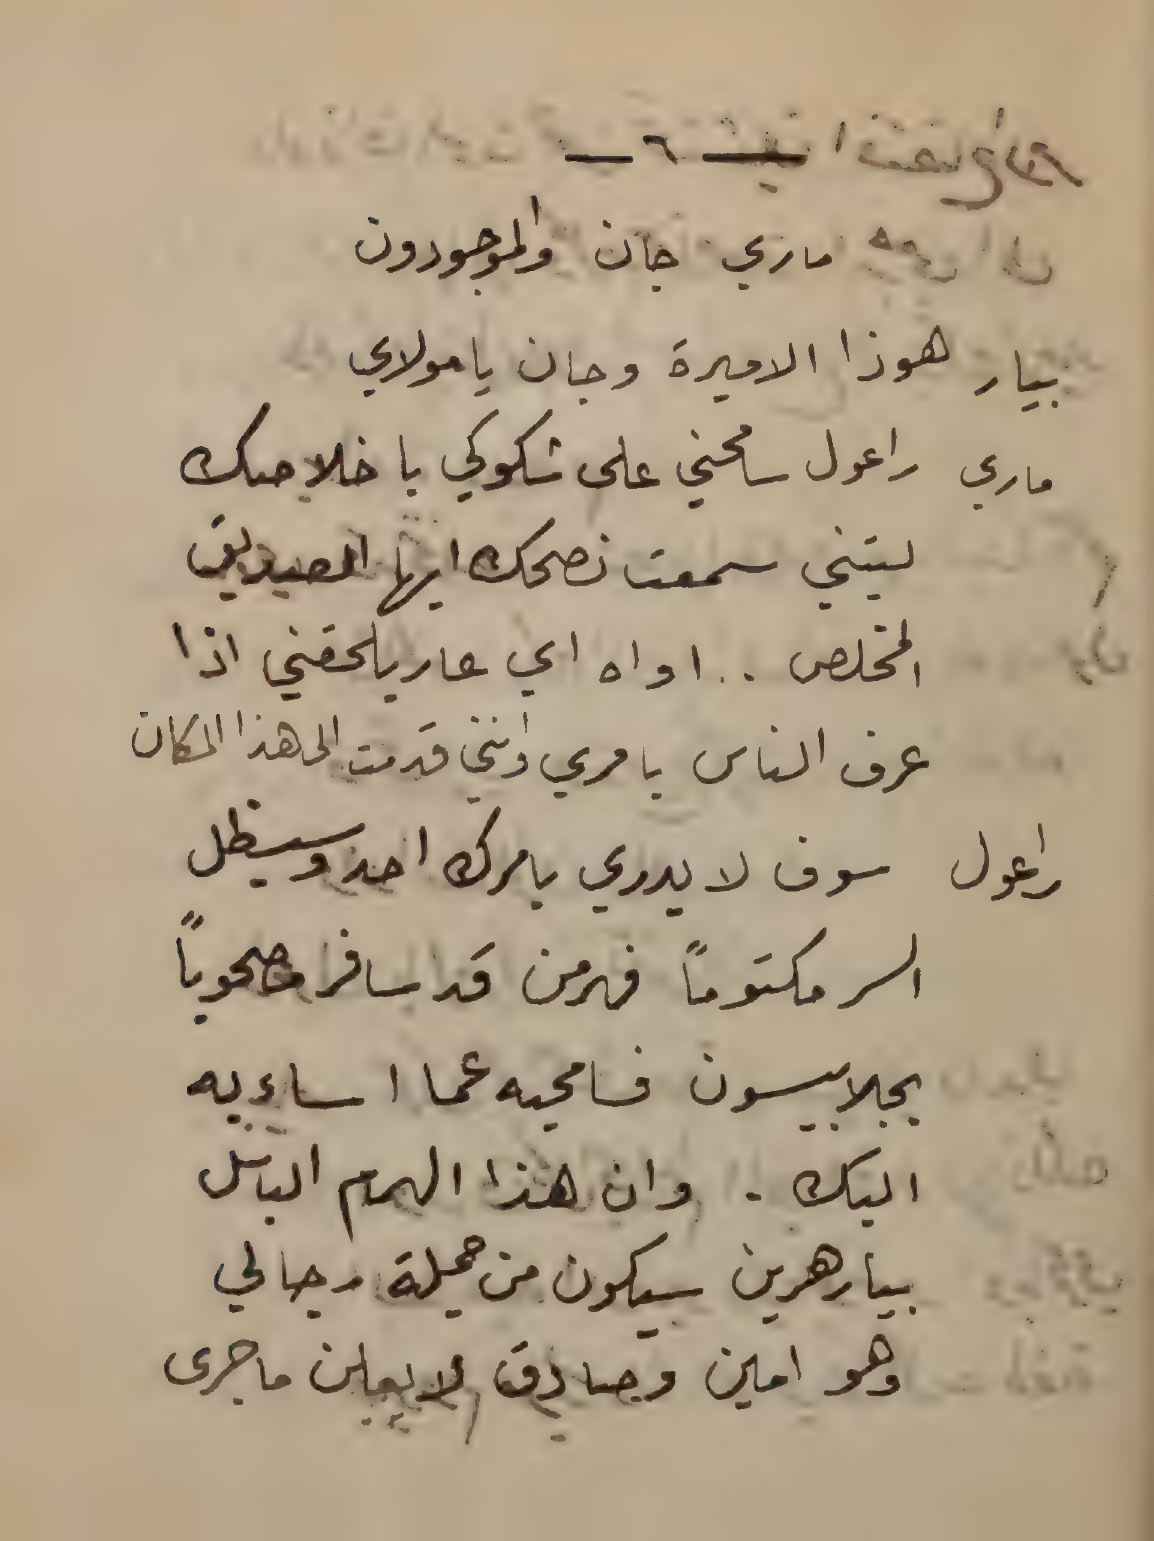 — ٦ —
ماري جان والموجودون
بيار هوذا الاميرة وجان يا مولاي
ماري راعول سامحني على شكوكي باخلاصك
ليتني سمعت نصحك ايها الصديق
المخلص .. اواه اي عار يلحقني اذا
عرف الناس بامري وانني قدمت الى هذا المكان
راعول سوف لا يدري بامرك احد وسيظل
السر مكتوماً فهرمن قد سافر مصحوباً
بجلابيسون فسامحيه عما اساء به
اليك . وان هذا الهمام الباسل
بيار هرين سيكون من جملة رجالي
وهو امين وصادق لا يعلن ما جرى